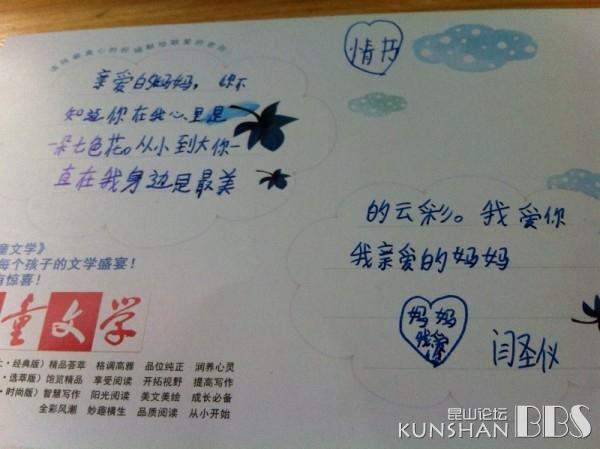 情书
亲爱的妈妈，你不
知道你在我心里是
一朵七色花。从小到大你一
直在我身边是最美
的云彩。我爱你
我亲爱的妈妈
妈妈
我爱
闫圣仪
童文学》
每个孩子的文学盛宴！
有惊喜！
童文学
·经典版）精品荟萃 格调高雅 品位纯正 润养心灵
·选萃版）饱览精品 享受阅读 开拓视野 提高写作
·时尚版）智慧写作 阳光阅读 美文美绘 成长必备
全彩风潮 妙趣横生 品质阅读 从小开始
昆山论坛
KUNSHAN BBS